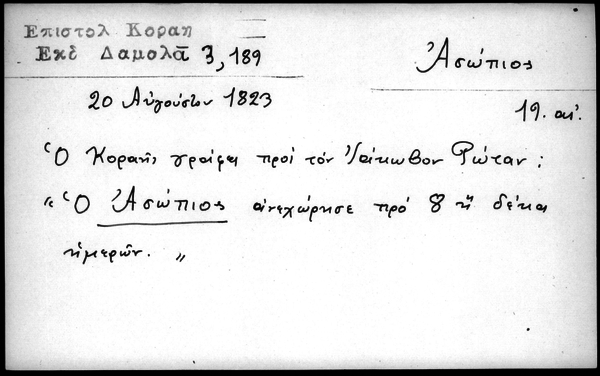 Επιστολ Κοραη
Εκδ Δαμαλᾶ 3, 189
Ἀσώπιος
20 Αὐγούστου 1823
19. αἰ.
Ὁ Κοραῆς γράφει πρὸς τὸν Ἰάκωβον Ρώταν:
«Ὁ Ἀσώπιος ἀνεχώρησε πρὸ 8 ἢ δέκα
ἡμερῶν.»